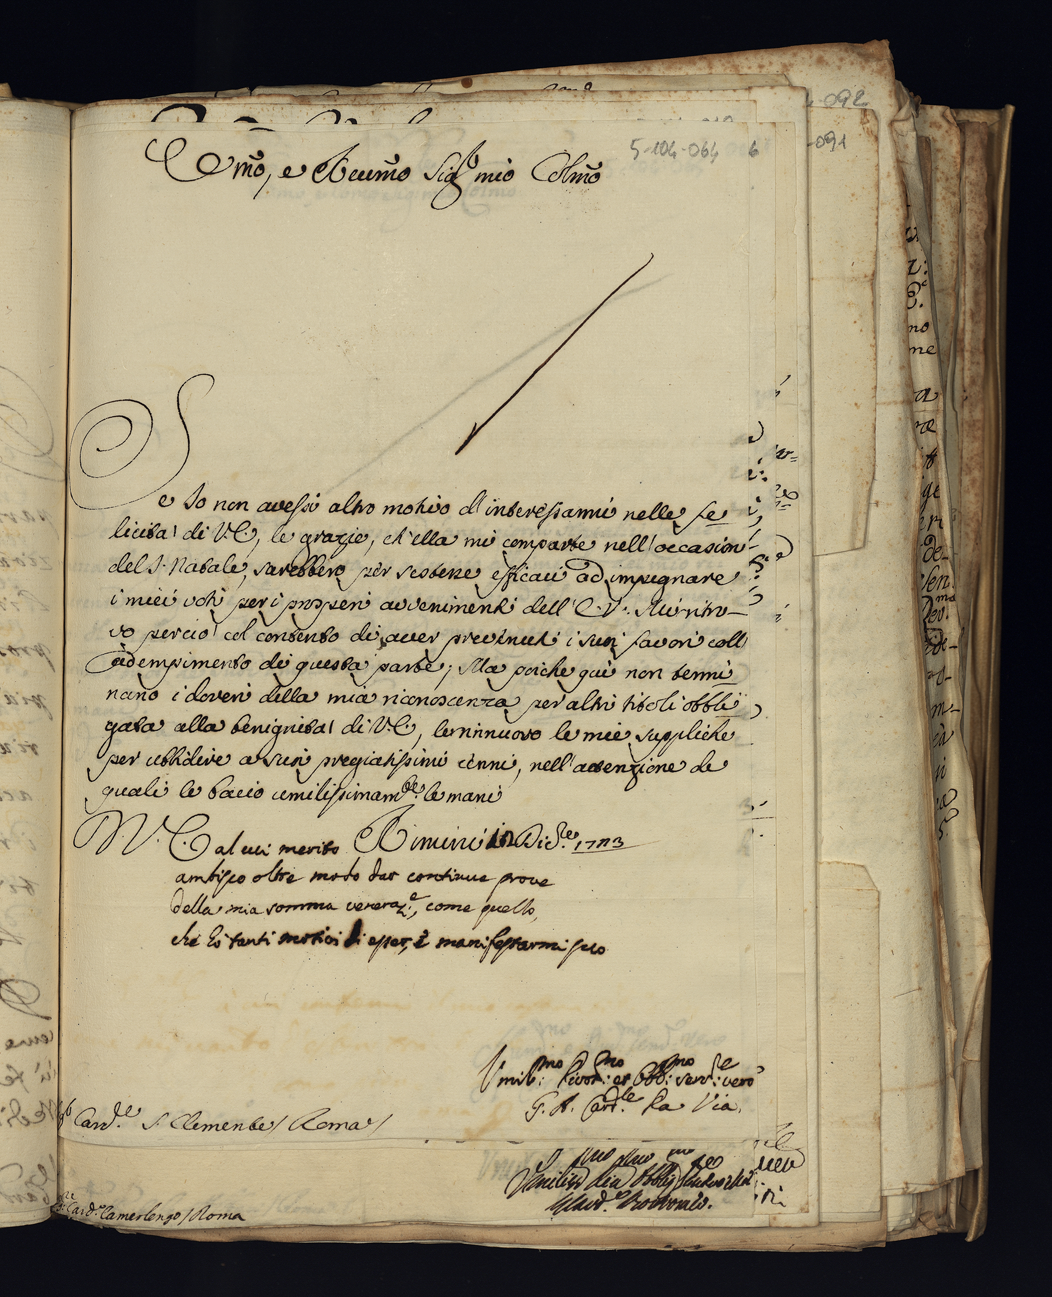 5-104-064 6
-092
-091
Emo, e Reumo Sigr mio Colmo
Se Io non avessi altro motivo d'interessarmi nelle fe
licita' di V.E., le grazie, ch'ella mi comparte nell'occasion
del S. Natale, sarebbero per se stesse efficaci ad impegnare
i miei voti per i prosperi avvenimenti dell'E.V. Mi ritro-
vo percio' col contento di aver prevenuti i suoi favori coll
adempimento di questa parte; Ma poiche qui non termi
nano i doveri della mia riconoscenza per altri titoli obbli
gata alla benignita' di V.E., le rinnuovo le mie suppliche
per ubbidire a suoi pregiatissimi cenni, nell'attenzione de
quali le bacio umilissimamde le mani
V.E. al cui merito Rimini Dice 1723
ambisco oltre modo dar continue prove
della mia somma veneraze, come quello,
che hò tanti motivi di esser, e manifestarmi
Umilmo Divotmo et Obbmo servre vero
G. A. Cardle La Via
Carde S. Clemente / Roma /
Carde Camerlengo / Roma